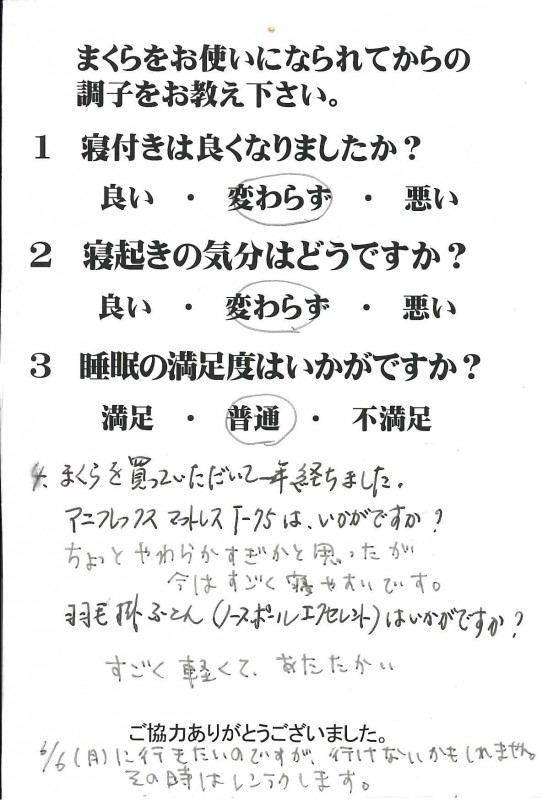 まくらをお使いになられてからの
調子をお教え下さい。
1 寝付きは良くなりましたか？
良い ・ 変わらず ・ 悪い
2 寝起きの気分はどうですか？
良い ・ 変わらず ・ 悪い
3 睡眠の満足度はいかがですか？
満足 ・ 普通 ・ 不満足
4. まくらを買っていただいて一年経ちました。
マニフレックス マットレス T-75は、いかがですか？
ちょっとやわらかすぎかと思ったが
今はすごく寝やすいです。
羽毛掛ふとん(ノースポールエクセレント)はいかがですか？
すごく軽くて、あたたかい
ご協力ありがとうございました。
6/6(月)に行きたいのですが、行けないかもしれません。
その時はレンラクします。